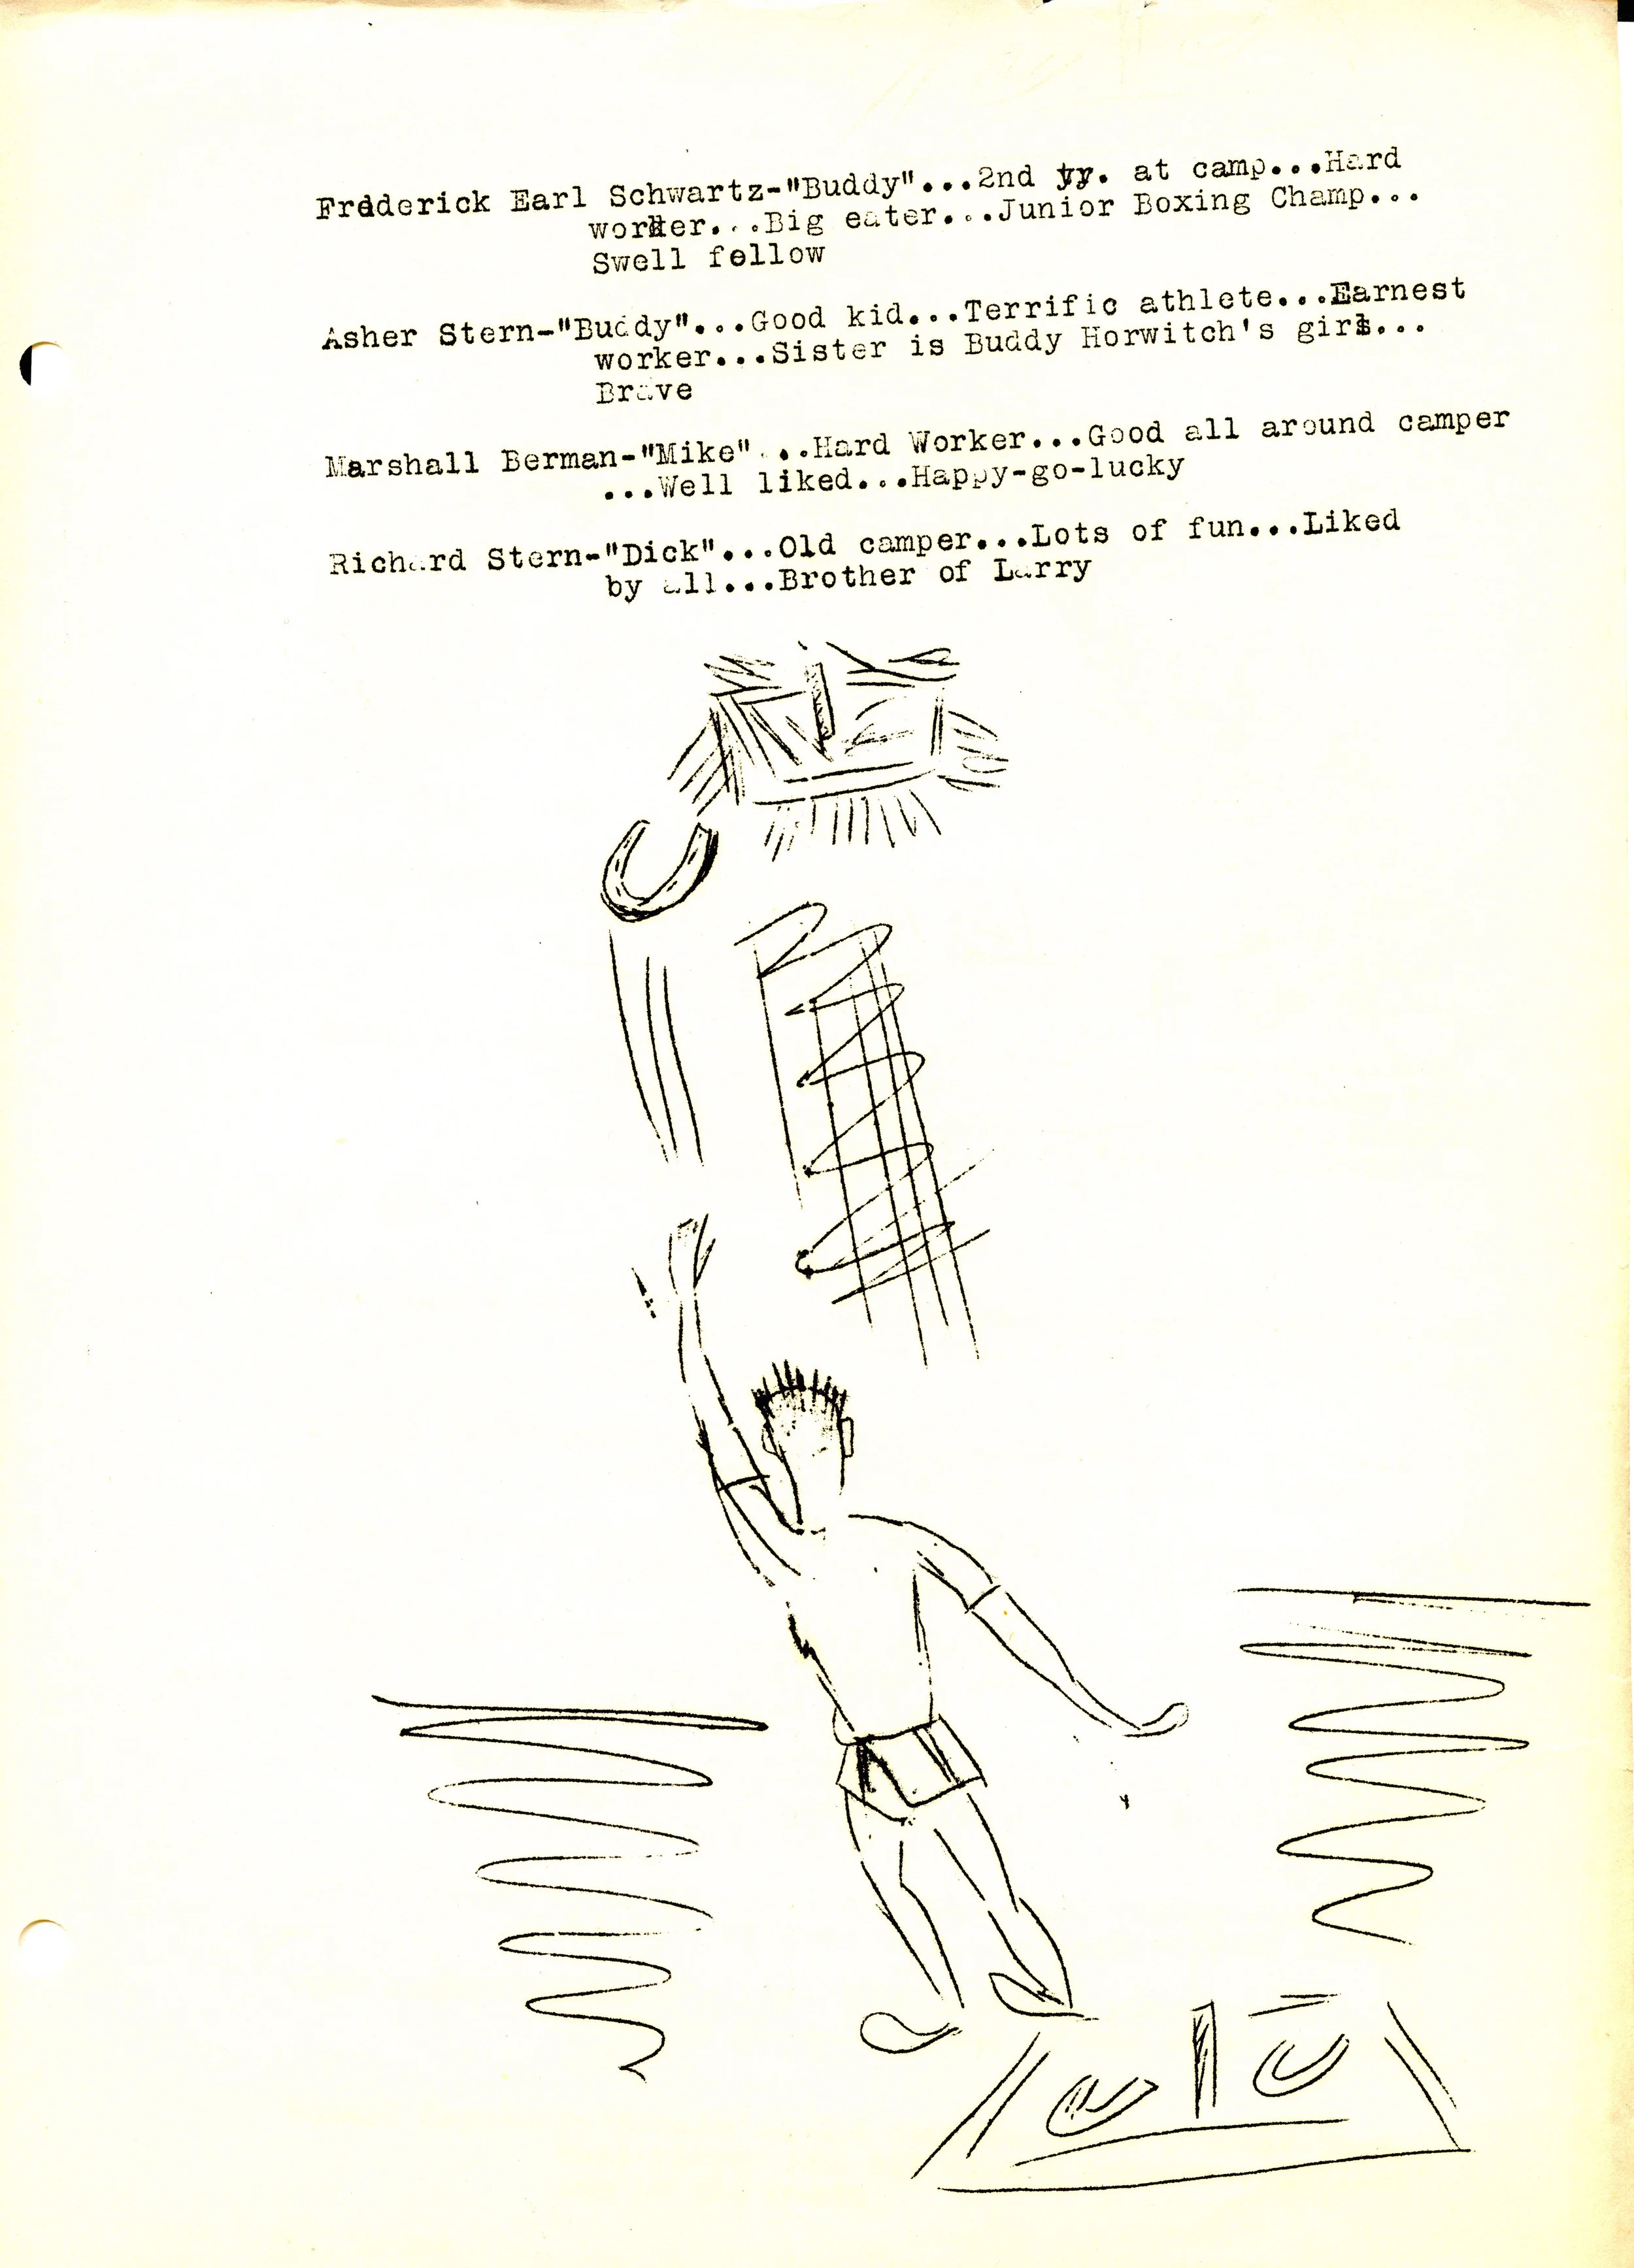 Frederick Earl Schwartz-"Buddy"...2nd yr. at camp...Hard
worker...Big eater...Junior Boxing Champ...
Swell fellow
Asher Stern-"Buddy"...Good kid...Terrific athlete...Earnest
worker...Sister is Buddy Horwitch's girl...
Brave
Marshall Berman-"Mike"...Hard Worker...Good all around camper
...Well liked...Happy-go-lucky
Richard Stern-"Dick"...Old camper...Lots of fun...Liked
by all...Brother of Larry